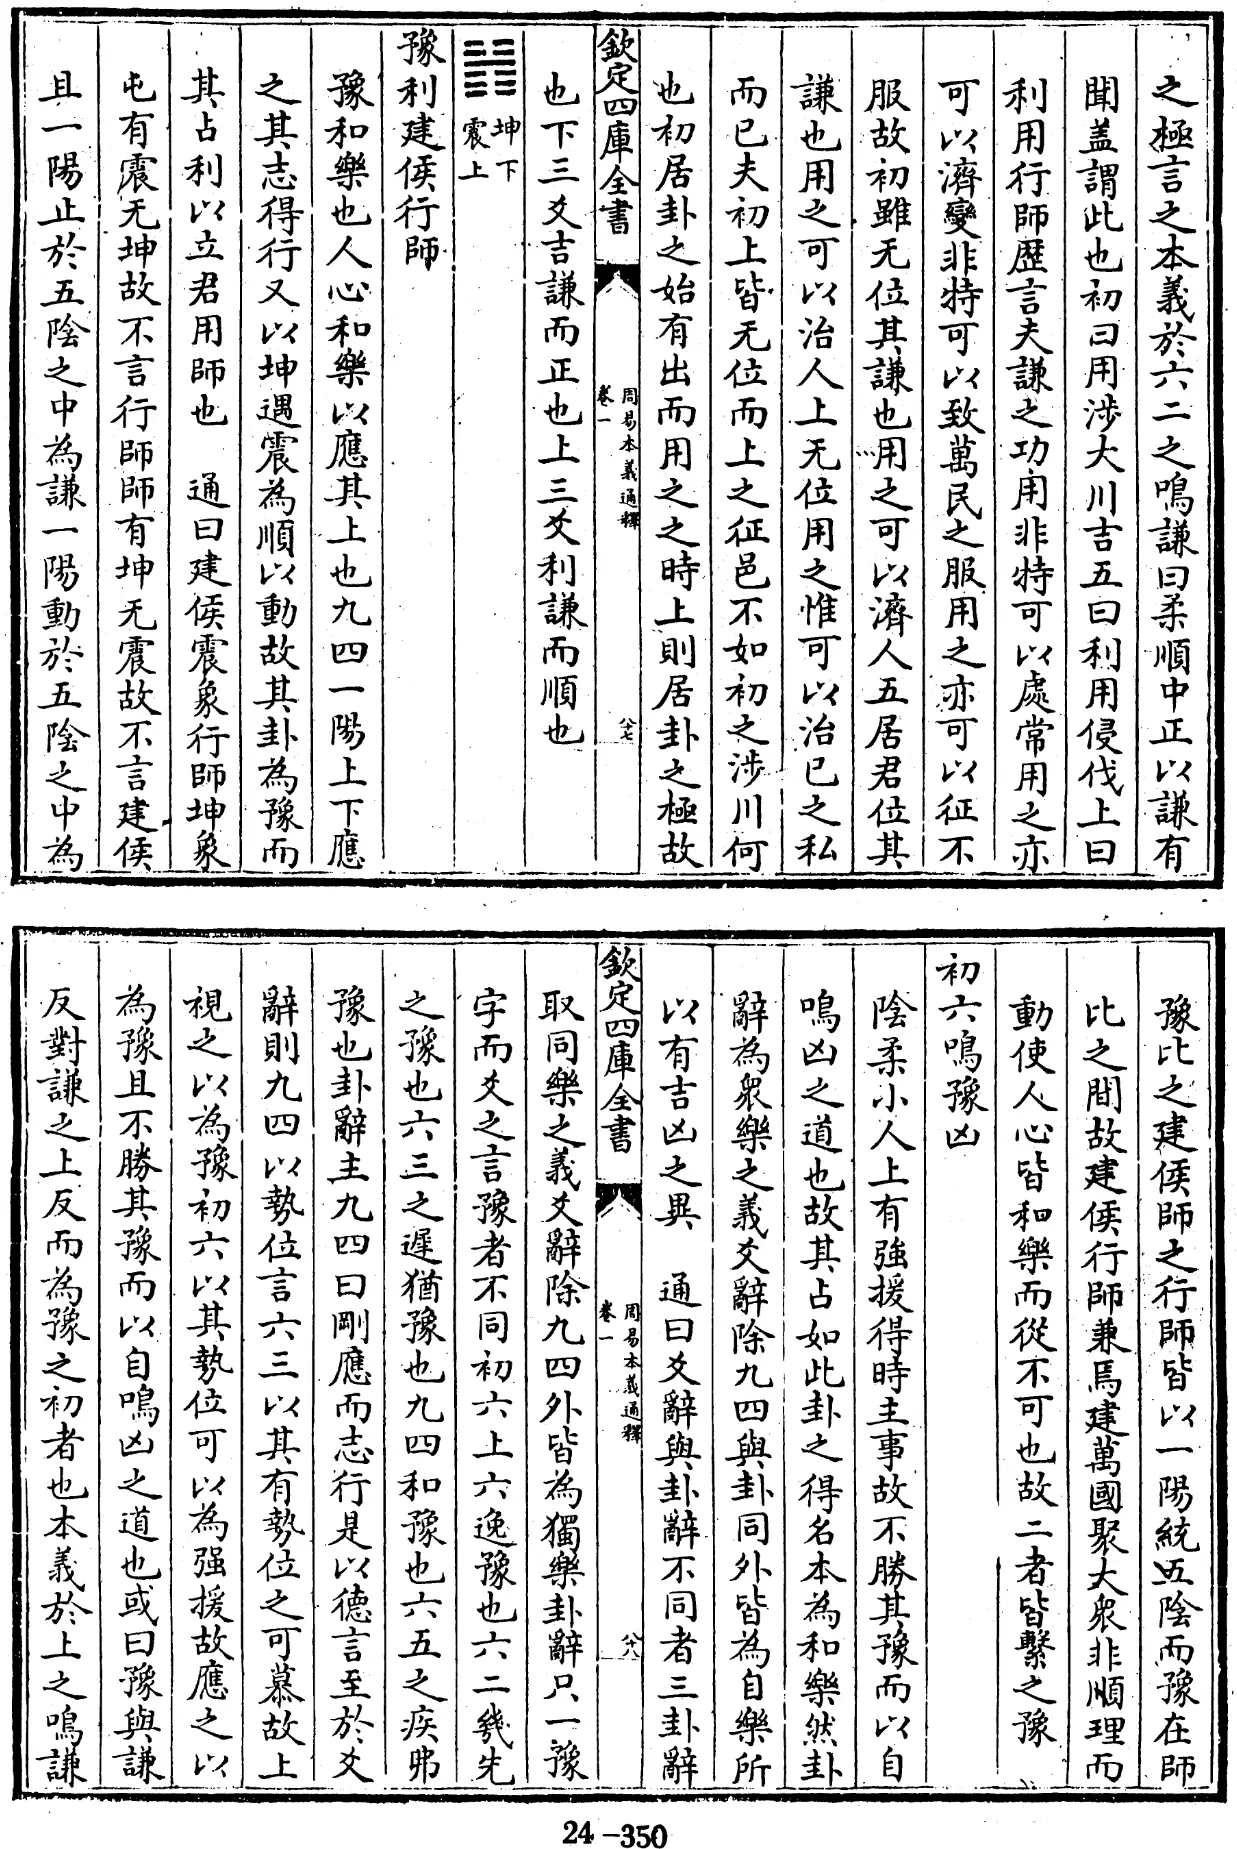 之極言之本義於六二之鳴謙曰柔順中正以謙有
聞盖謂此也初曰用涉大川吉五曰利用侵伐上曰
利用行師歴言夫謙之功用非特可以處常用之亦
可以濟變非特可以致萬民之服用之亦可以征不
服故初雖无位其謙也用之可以濟人五居君位其
謙也用之可以治人上无位用之惟可以治已之私
而已夫初上皆无位而上之征邑不如初之涉川何
也初居卦之始有出而用之之時上則居卦之極故
欽定四庫全書
周易本義通釋
卷一
八十七
也下三爻吉謙而正也上三爻利謙而順也
坤下
震上
豫利建侯行師
豫和樂也人心和樂以應其上也九四一陽上下應
之其志得行又以坤遇震為順以動故其卦為豫而
其占利以立君用師也　通曰建侯震象行師坤象
屯有震无坤故不言行師師有坤无震故不言建侯
且一陽止於五陰之中為謙一陽動於五陰之中為
豫比之建侯師之行師皆以一陽統五陰而豫在師
比之間故建侯行師兼焉建萬國聚大衆非順理而
動使人心皆和樂而從不可也故二者皆繫之豫
初六鳴豫凶
陰柔小人上有強援得時主事故不勝其豫而以自
鳴凶之道也故其占如此卦之得名本為和樂然卦
辭為衆樂之義爻辭除九四與卦同外皆為自樂所
以有吉凶之異　通曰爻辭與卦辭不同者三卦辭
欽定四庫全書
周易本義通釋
卷一
八十八
取同樂之義爻辭除九四外皆為獨樂卦辭只一豫
字而爻之言豫者不同初六上六逸豫也六二幾先
之豫也六三之遲猶豫也九四和豫也六五之疾弗
豫也卦辭主九四曰剛應而志行是以德言至於爻
辭則九四以勢位言六三以其有勢位之可慕故上
視之以為豫初六以其勢位可以為强援故應之以
為豫且不勝其豫而以自鳴凶之道也或曰豫與謙
反對謙之上反而為豫之初者也本義於上之鳴謙
24-350